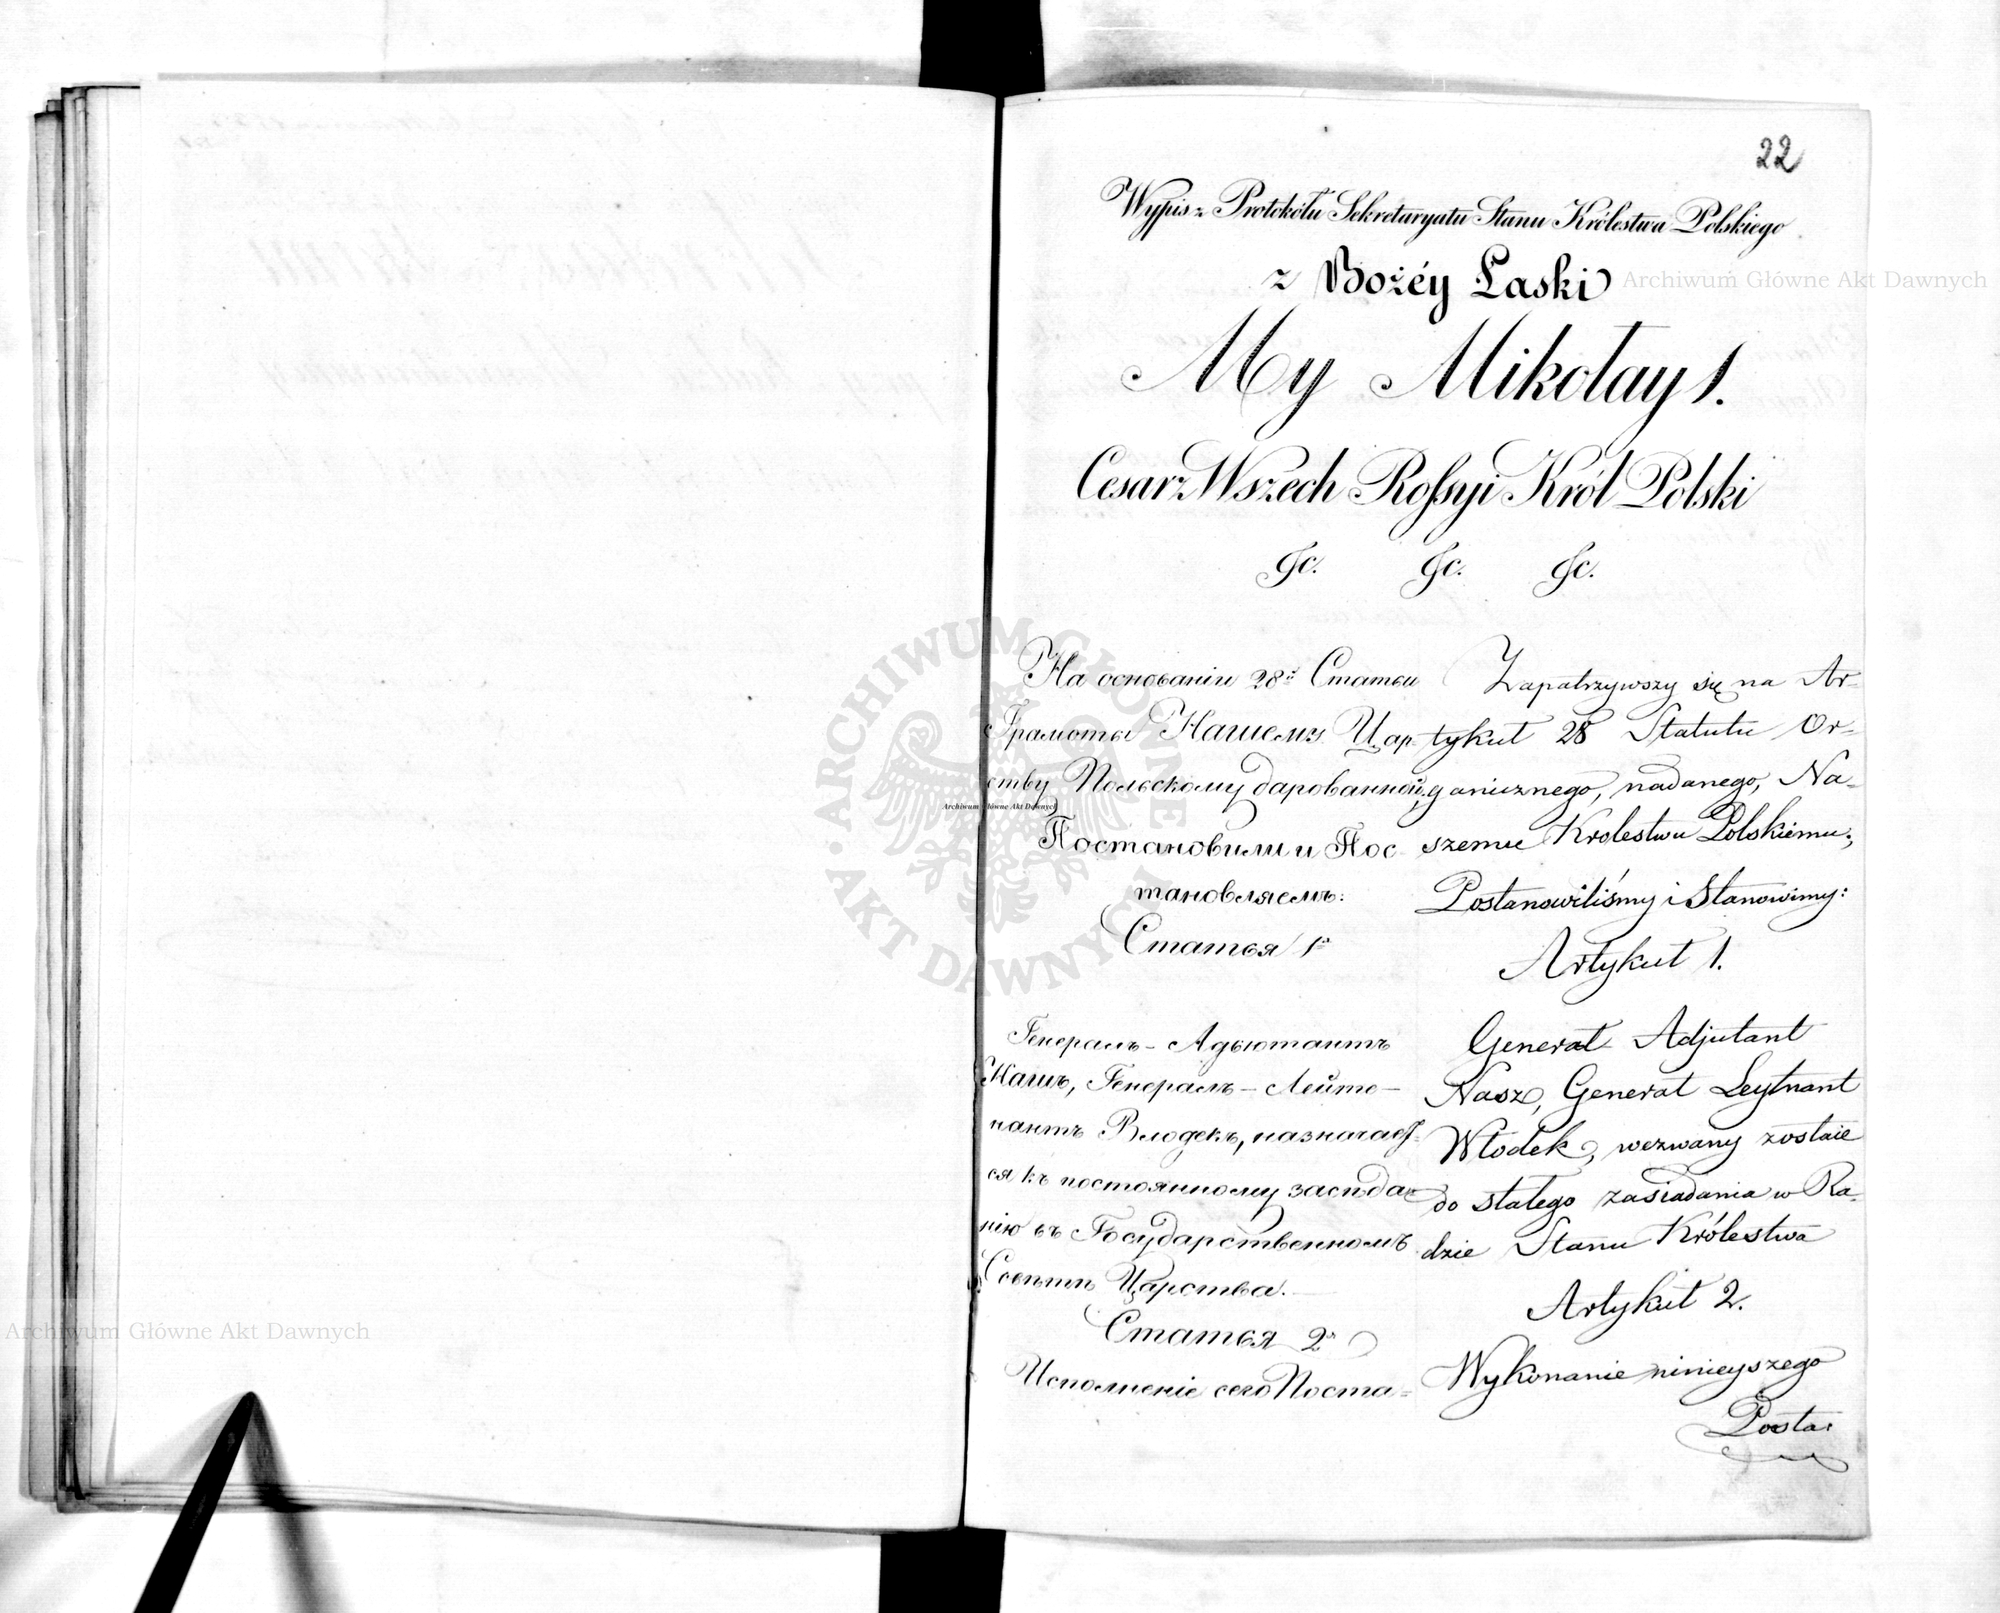 22
Wypis z Protokółu Sekretaryatu Stanu Królestwa Polskiego
z Bożéy Łaski
My Mikołay 1.
Cesarz Wszech Rossyi Król Polski
&c. &c. &c.
На основаніи 28й Статьи
Грамоты Нашему Цар-
ству Польскому дарованной,
Постановили и Пос-
тановляемъ:
Статья 1я
Генералъ-Адъютантъ
Нашъ, Генералъ-Лейте-
нантъ Влодекъ, назначает-
ся къ постоянному засѣда-
нію въ Государственномъ
Совѣтѣ Царства.
Статья 2я
Исполненіе сего Поста-
Zapatrzywszy się na Ar-
tykuł 28 Statutu Or-
ganicznego, nadanego, Na-
szemu Krolestwu Polskiemu;
Postanowiliśmy i Stanowimy:
Artykuł 1.
Generał Adjutant
Nasz, Generał Leytnant
Włodek, wezwany zostaie
do stałego zasiadania w Ra-
dzie Stanu Królestwa
Artykuł 2.
Wykonanie ninieyszego
Posta-
Archiwum Główne Akt Dawnych
Archiwum Główne Akt Dawnych
Archiwum Główne Akt Dawnych
ARCHIWUM GŁÓWNE
AKT DAWNYCH